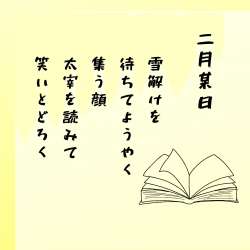 二月某日
雪解けを
待ちてようやく
集う顔
太宰を読みて
笑いとどろく